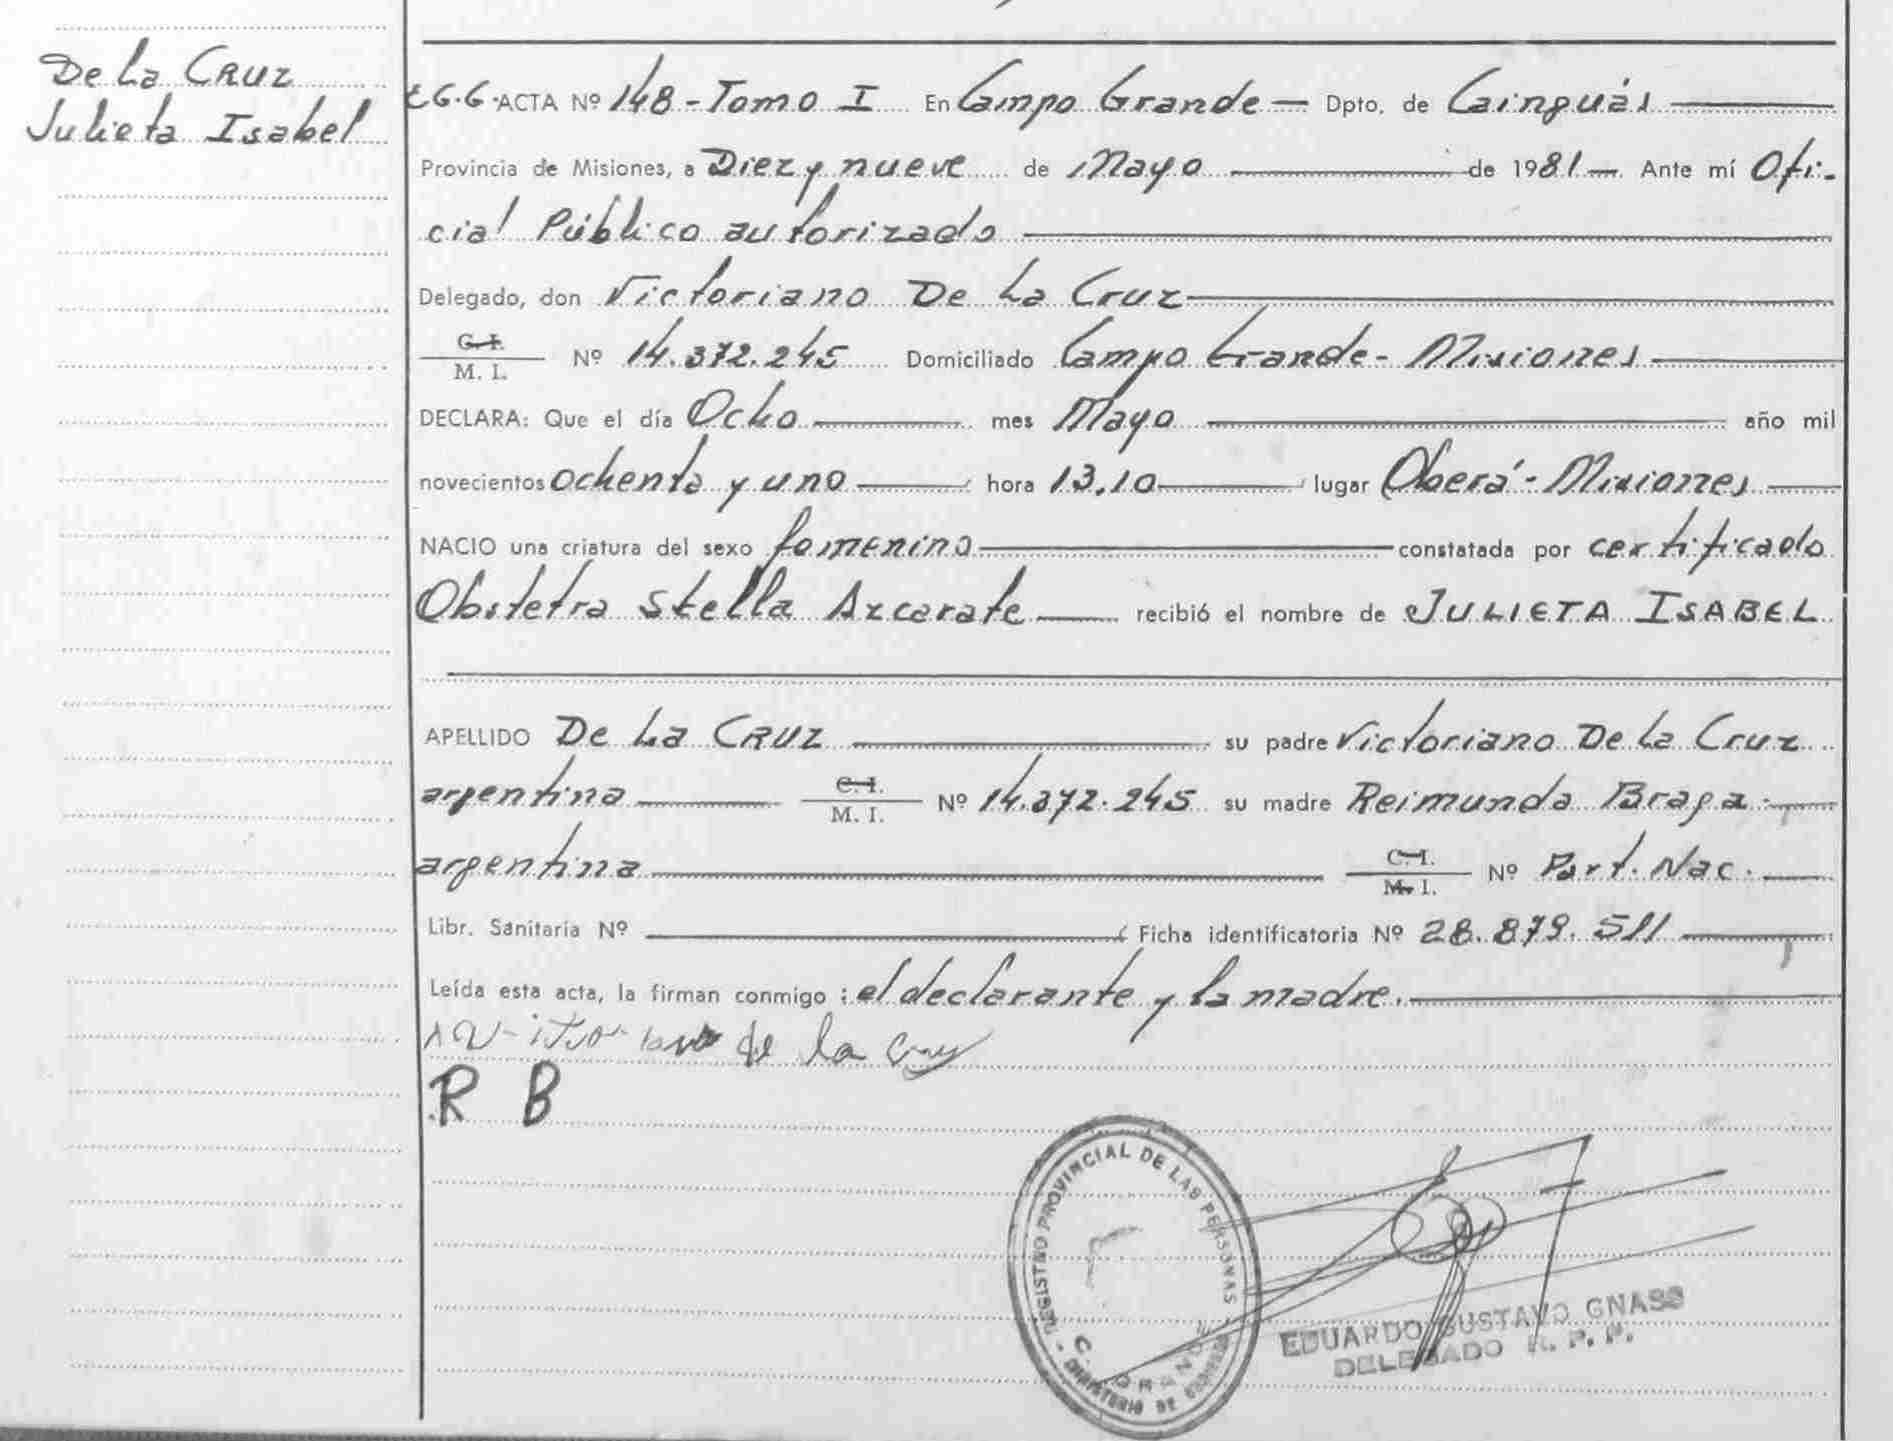 De La Cruz
Julieta Isabel
E.G.G. ACTA Nº 148 - Tomo I En Campo Grande — Dpto. de Cainguás
Provincia de Misiones, a Diez y nueve de Mayo de 1981 — Ante mí Ofi-
cial Público autorizado
Delegado, don Victoriano De La Cruz
C. I.
M. I. Nº 14.372.245 Domiciliado Campo Grande - Misiones
DECLARA: Que el día Ocho mes Mayo año mil
novecientos ochenta y uno hora 13,10 lugar Oberá - Misiones
NACIO una criatura del sexo femenino constatada por certificado
Obstetra Stella Azcarate recibió el nombre de JULIETA ISABEL
APELLIDO De La Cruz su padre Victoriano De La Cruz
argentina C. I.
M. I. Nº 14.372.245 su madre Reimunda Braga.
argentina C. I.
M. I. Nº Part. Nac.
Libr. Sanitaria Nº Ficha identificatoria Nº 28.879.511
Leída esta acta, la firman conmigo: el declarante y la madre.
de la Cruz
R B
REGISTRO PROVINCIAL DE LAS PERSONAS
C. GRANDE
MINISTERIO DE GOBIERNO
EDUARDO GUSTAVO GNASS
DELEGADO R. P. P.